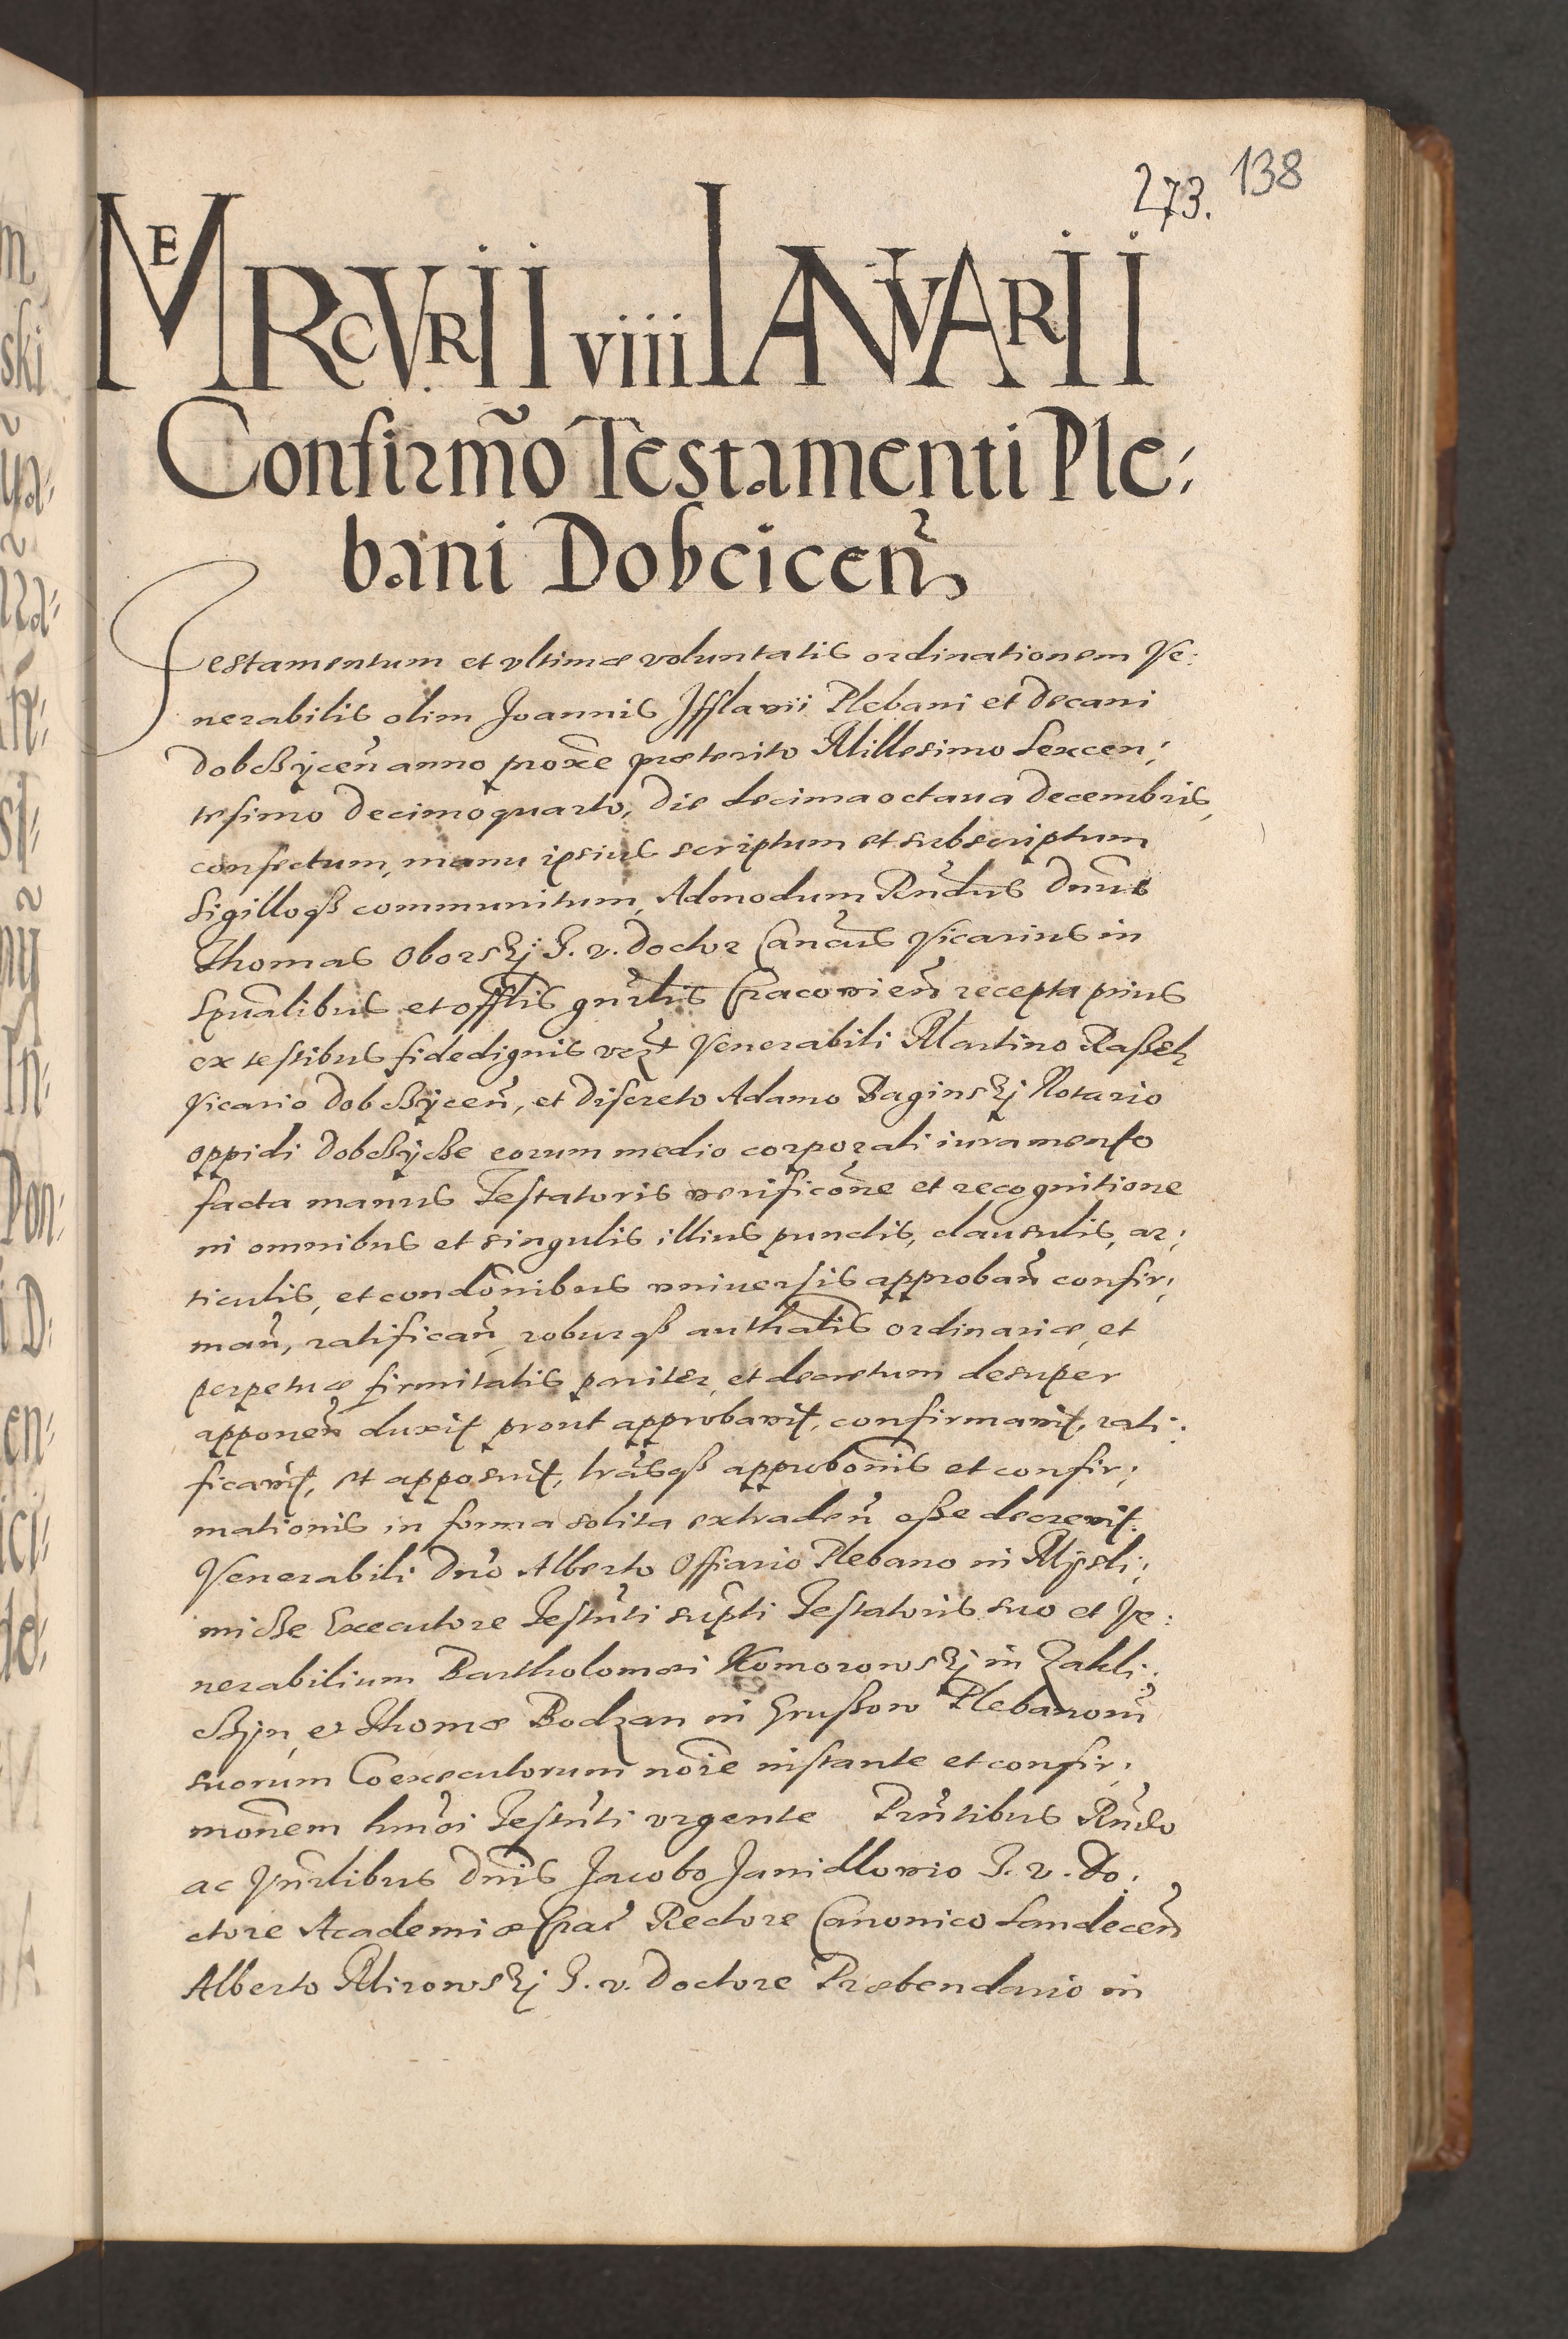 273. 138
MERCVRII viii IANVARII
Confirmõ Testamenti Ple:
bani Dobcicen̄
Testamentum et vltimæ voluntatis ordinationem Ve:
nerabilis olim Joannis Jfflavii Plebani et Decani
Dobcżycen̄ anno proxē præterito Millesimo Sexcen:
tesimo Decimoquarto, Die decima octaua Decembris,
confectum, manu ipsius scriptum et subscriptum
Sigilloqß communitum, Admodum Rn̄dus Dn̄us
Thomas Oborskj J. v. Doctor Can̄cus Vicarius in
Spūalibus et offlis gn̄rlis Cracovien̄ recepta prius
ex testibus fidedignis vezt Venerabili Martino Raßek
Vicario Dobcżycen̄, et Discreto Adamo Baginskj Notario
oppidi Dobcżycże eorum medio corporali iuramento
facta manus Testatoris verificōne et recognitione
in omnibus et singulis illius punctis, clausulis, ar:
ticulis, et condōnibus vniuersis approban̄ confir:
man̄, ratifican̄, roburqß authātis ordinariæ, et
perpetuæ firmitatis pariter, et decretum desuper
apponen̄ duxit prout approbavit, confirmavit, rati:
ficavit, et apposuit, lrāsqß approbōnis et confir:
mationis in forma solita extraden̄ eße decrevit.
Venerabili Dn̄o Alberto Offiario Plebano in Mÿsli:
micże Executore Testn̄ti sup̄ti Testatoris suo et Ve:
nerabilium Bartholomæi Komorowskj in Zakli:
cżyn, et Thomæ Bodzan in Grußow Plebanorū
suorum Coexecutorum noīe instante et confir:
mōnem hm̄oi Testn̄ti vrgente Prn̄tibus Rn̄do
ac Vn̄rlibus Dn̄is Jacobo Janidlowio J. v. Do:
ctore Academiæ Crac̄ Rectore Canonico Sandecen̄
Alberto Mirowskj J. v. Doctore Præbendario in